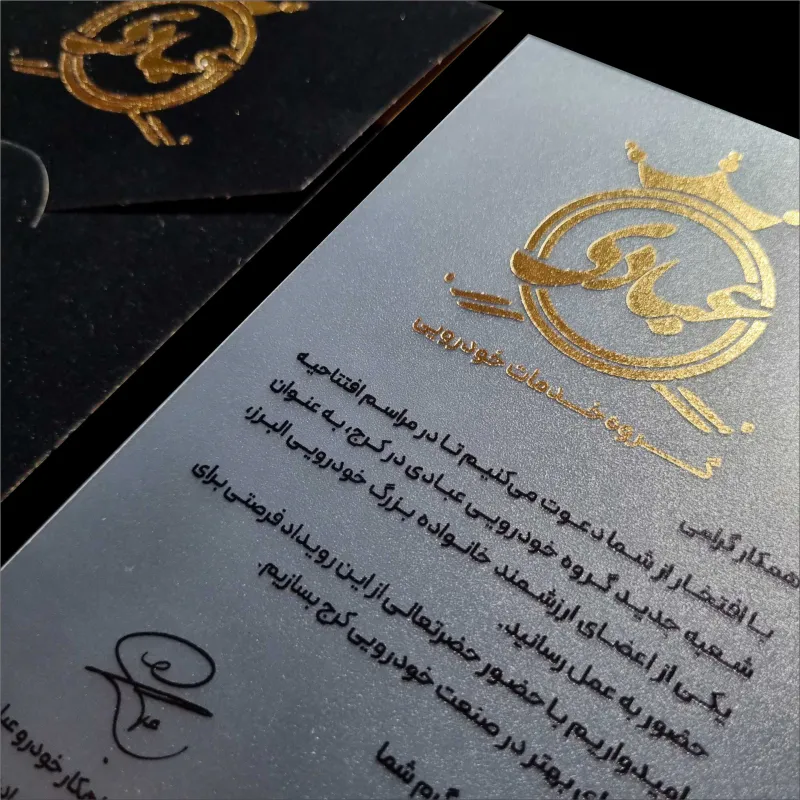 عبادی
عبادی
گروه خدمات خودرویی
همکار گرامی
با افتخار از شما دعوت می‌کنیم تا در مراسم افتتاحیه
شعبه جدید گروه خودرویی عبادی در کرج، به عنوان
یکی از اعضای ارزشمند خانواده بزرگ خودرویی البرز،
حضور به عمل رسانید.
امیدواریم با حضور حضرتعالی از این رویداد فرصتی برای
بهتر در صنعت خودرویی کرج بسازیم.
گرم شما